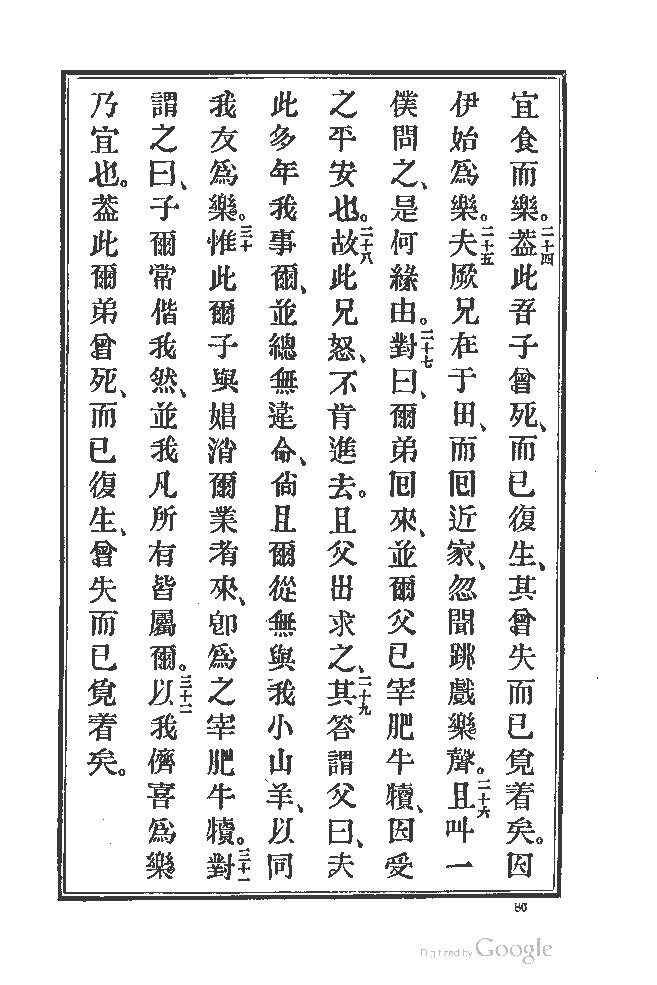 宜食而樂。二十四葢此吾子曾死、而已復生、其曾失而已覓着矣。因
伊始爲樂。二十五夫厥兄在于田、而囘近家、忽聞跳戲樂聲。二十六且叫一
僕問之、是何緣由。二十七對曰、爾弟囘來、並爾父已宰肥牛犢、因受
之平安也。二十八故此兄怒、不肯進去。且父出求之、二十九其答謂父曰、夫
此多年我事爾、並總無違命、尙且爾從無與我小山羊、以同
我友爲樂。三十惟此爾子與娼消爾業者來、卽爲之宰肥牛犢。三十一對
謂之曰、子爾常偕我然、並我凡所有皆屬爾。三十二以我儕喜爲樂
乃宜也。葢此爾弟曾死、而已復生、曾失而已覓着矣。
86
Digitized by Google